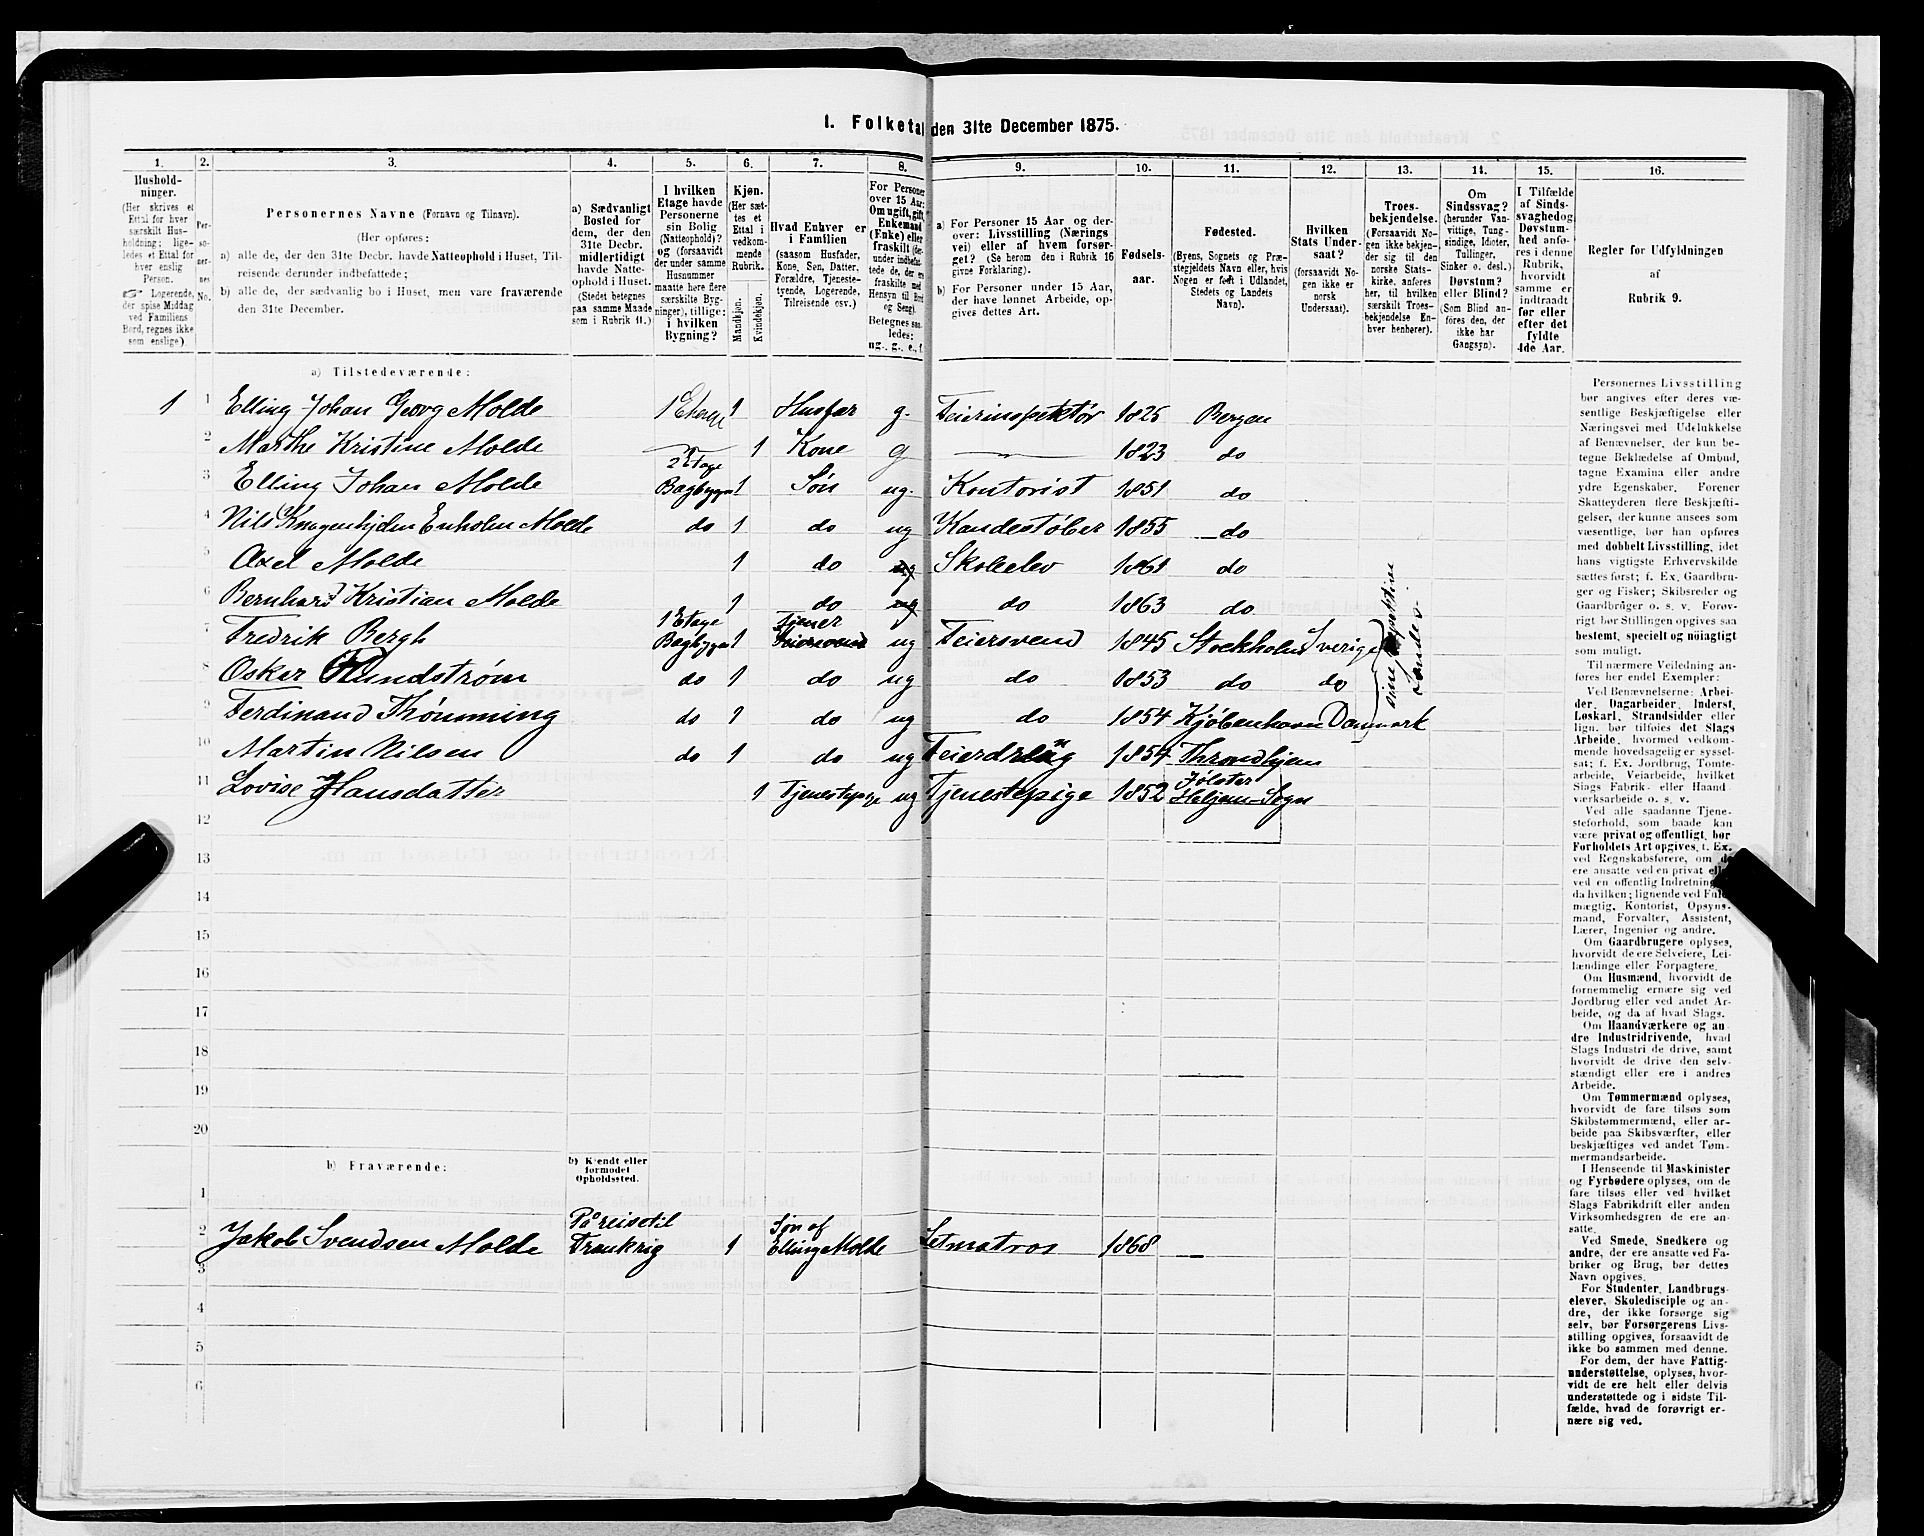 1. Folketal den 31te December 1875.
1. 2. 3. 4. 5. 6. 7. 8. 9. 10. 11. 12. 13. 14. 15. 16.
Hushold-
ninger.
(Her skrives et
Ettal for hver
særskilt Hus-
holdning; lige-
ledes et Ettal for
hver enslig
Person.
☞ Logerende,
der spise Middag
ved Familiens
Bord, regnes ikke
som enslige.)
Per-
so-
ner-
nes
No.
Personernes Navne (Fornavn og Tilnavn).
(Her opføres:
a) alle de, der den 31te Decbr. havde Natteophold i Huset, Til-
reisende derunder indbefattede;
b) alle de, der sædvanlig bo i Huset, men vare fraværende
den 31te December.
a) Sædvanligt
Bosted for
dem, der den
31te Decbr.
midlertidigt
havde Natte-
ophold i Huset.
(Stedet betegnes
paa samme Maade
som i Rubrik 11.)
I hvilken
Etage havde
Personerne
sin Bolig
(Natteophold)?
og (forsaavidt
der under samme
Husnummer
maatte høre flere
særskilte Byg-
ninger), tillige:
i hvilken
Bygning?
Kjøn.
(Her sæt-
tes et
Ettal i
vedkom-
mende
Rubrik.
Mandkjøn.
Kvindekjøn.
Hvad Enhver er
i Familien
(saasom Husfader,
Kone, Søn, Datter,
Forældre, Tjeneste-
tyende, Logerende,
Tilreisende osv.)
For Personer
over 15 Aar:
Om ugift, gift,
Enkemand
(Enke) eller
fraskilt (der-
under indbefat-
tede de, der ere
fraskilte med
Hensyn til Bord
og Seng).
Betegnes saa-
ledes:
ug., g., e., f.
a) For Personer 15 Aar og der-
over: Livsstilling (Nærings
vei) eller af hvem forsør-
get? (Se herom den i Rubrik 16
givne Forklaring).
b) For Personer under 15 Aar,
der have lønnet Arbeide, op-
gives dettes Art.
Fødsels-
aar.
Fødested.
(Byens, Sognets og Præ-
stegjeldets Navn eller, hvis
Nogen er født i Udlandet,
Stedets og Landets
Navn).
Hvilken
Stats Under-
saat?
(forsaavidt No-
gen ikke er
norsk
Undersaat).
Troes-
bekjendelse.
(Forsaavidt No-
gen ikke bekjen-
der sig til den
norske Stats-
kirke, anføres
her, til hvilken
særskilt Troes-
bekjendelse En-
hver henhører).
Om
Sindssvag?
(herunder Van-
vittige, Tung-
sindige, Idioter,
Tullinger,
Sinker o. desl.)
Døvstum?
eller Blind?
(Som Blind an-
føres den, der
ikke har
Gangsyn).
I Tilfælde
af Sinds-
svaghed og
Døvstum-
hed anfø-
res i denne
Rubrik,
hvorvidt
samme er
indtraadt
før eller
efter det
fyldte
4de Aar.
Regler for Udfyldningen
af
Rubrik 9.
a) Tilstedeværende:
1 1 Elling Johan Georg Molde 1 Etage 1 Husfar g. Feierinspektør 1825 Bergen
2 Marthe Kristine Molde 1 Kone g 1823 do
3 Elling Johan Molde 2 Etage Bagbygn 1 Søn ug. Kontorist 1851 do
4 Nils Enholm Molde do 1 do ug Kandestøber 1855 do
5 Axel Molde 1 do ug Skoleelev 1861 do
6 Bernhard Kristian Molde 1 do ug do 1863 do
7 Fredrik Bergh 1 Etage Bagbygn 1 Tjener Feiersvend ug Feiersvend 1845 Stockholm Sverige
8 Oskar Rundstrøm do 1 do ug do 1853 do do
9 Ferdinand Thönming do 1 do ug do 1854 Kjøbenhavn Danmark
10 Martin Nilsen do 1 do ug Feierdreng 1854 Throndhjem
11 Lovise Hansdatter 1 Tjenestepige ug Tjenestepige 1852 Jølster Heljem-Sogn
12
13
14
15
16
17
18
19
20
b) Fraværende:
b) Kjendt eller
formodet
Opholdssted.
1
2 Jakob Svendsen Molde På reise til Frankrig 1 Søn af Elling Molde Letmatros 1868
3
4
5
6
Personernes Livsstilling
bør angives efter deres væ-
sentlige Beskjæftigelse eller
Næringsvei med Udelukkelse
af Benævnelser, der kun be-
tegne Beklædelse af Ombud,
tagne Examina eller andre
ydre Egenskaber. Forener
Skatteyderen flere Beskjæfti-
gelser, der kunne ansees som
væsentlige, bør han opføres
med dobbelt Livsstilling, idet
hans vigtigste Erhvervskilde
sættes først; f. Ex. Gaardbru-
ger og Fisker; Skibsreder og
Gaardbruger o. s. v. Forøv-
rigt bør Stillingen opgives saa
bestemt, specielt og nøiagtigt
som muligt.
Til nærmere Veiledning an-
føres her endel Exempler:
Ved Benævnelserne: Arbei-
der, Dagarbeider, Inderst,
Løskarl, Strandsidder eller
lign. bør tilføies det Slags
Arbeide, hvormed vedkom-
mende hovedsagelig er syssel-
sat; f. Ex. Jordbrug, Tomte-
arbeide, Veiarbeide, hvilket
Slags Fabrik- eller Haand
værksarbeide o. s. v.
Ved alle saadanne Tjene-
steforhold, som baade kan
være privat og offentligt, bør
Forholdets Art opgives, f. Ex.
ved Regnskabsførere, om de
ere ansatte ved en privat eller
ved en offentlig Indretning og
da hvilken; lignende ved Fuld-
mægtig, Kontorist, Opsyns-
mand, Forvalter, Assistent,
Lærer, Ingeniør og andre.
Om Gaardbrugere oplyses,
hvorvidt de ere Selveiere, Lei-
lændinge eller Forpagtere.
Om Husmænd, hvorvidt de
fornemmelig ernære sig ved
Jordbrug eller ved andet Ar-
beide, og da af hvad Slags.
Om Haandværkere og an
dre Industridrivende, hvad
Slags Industri de drive, samt
hvorvidt de drive den selv-
stændigt eller ere i andres
Arbeide.
Om Tømmermænd oplyses,
hvorvidt de fare tilsøs som
Skibstømmermænd, eller ar-
beide paa Skibsværfter, eller
beskjæftiges ved andet Tøm-
mermandsarbeide.
I Henseende til Maskinister
og Fyrbødere oplyses, om de
fare tilsøs eller ved hvilket
Slags Fabrikdrift eller anden
Virksomhedsgren de ere an-
satte.
Ved Smede, Snedkere og
andre, der ere ansatte ved Fa-
briker og Brug, bør dettes
Navn opgives.
For Studenter, Landbrugs-
elever, Skoledisciple og an-
dre, der ikke forsørge sig
selv, bør Forsørgerens Livs-
stilling opgives, forsaavidt de
ikke bo sammen med denne.
For dem, der have Fattig-
understøttelse, oplyses, hvor-
vidt de ere helt eller delvis
understøttede og i sidste Til-
fælde, hvad de forøvrigt er-
nære sig ved.